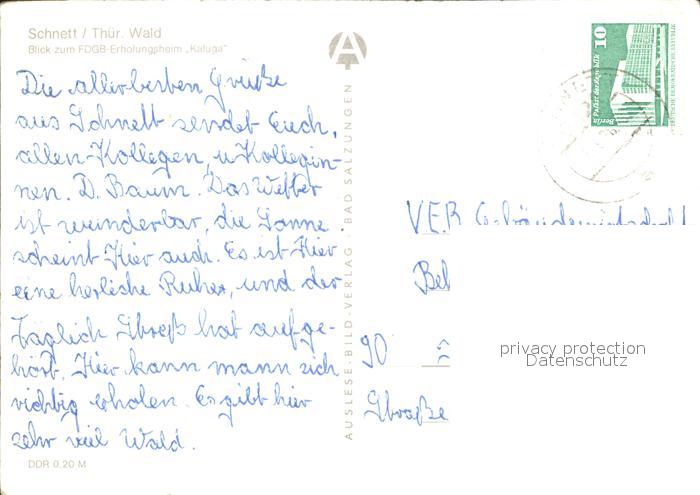 Schnett / Thür. Wald
Blick zum FDGB-Erholungsheim „Kaluga"
Die allerbesten Grüße
aus Schnett sendet Euch,
allen Kollegen, u Kollegin-
nen. D. Baum. Das Wetter
ist wunderbar, die Sonne
scheint Hier auch. Es ist Hier
eine herliche Ruhe, und der
Täglich Streß hat aufge-
hört. Hier kann mann sich
richtig erholen. Es gibt hier
sehr viel Wald.
DDR 0,20 M
AUSLESE-BILD-VERLAG BAD SALZUNGEN
A
10
Palast der Republik
Berlin
VEB
90
Straße
privacy protection
Datenschutz